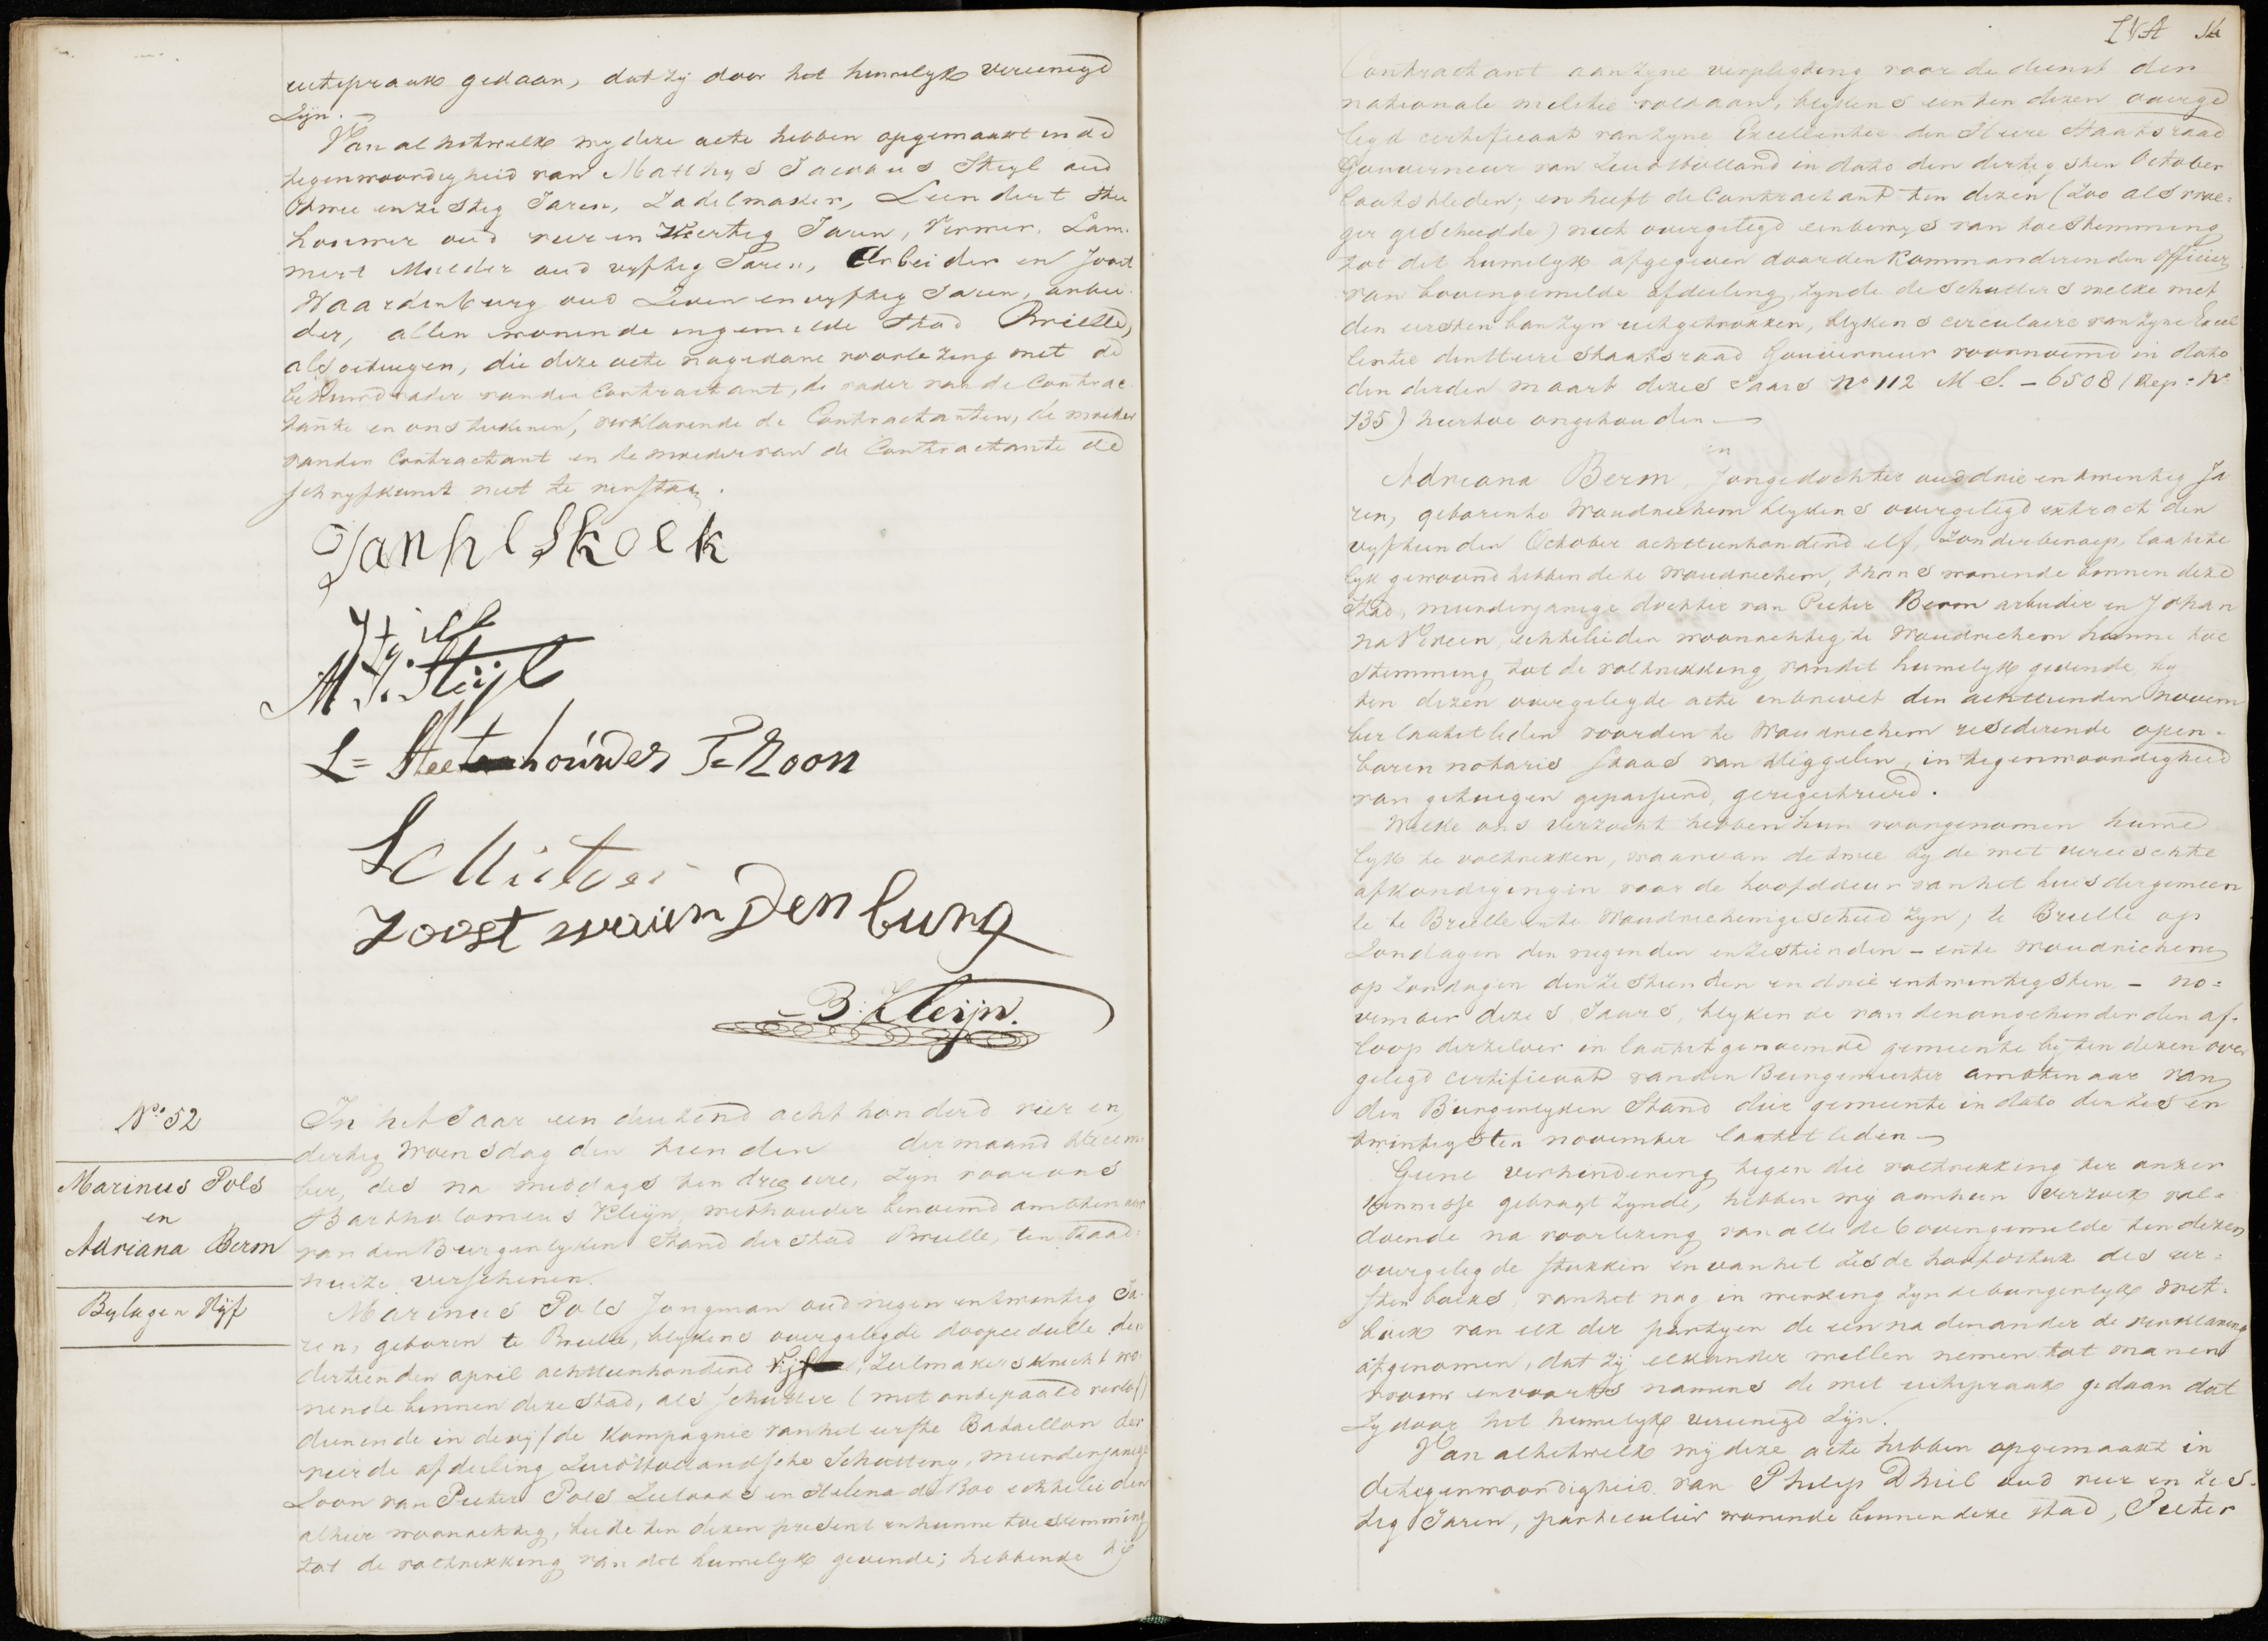 uitspraak gedaan, dat zy door het huwelyk vereenigd
zyn.
Van al hetwelk wy deze acte hebben opgemaakt in de
tegenwoordigheid van Matthys Jacobus Steyl oud
twee en zestig Jaren, Zadelmaker, Leendert Stee
houwer oud vier en Veertig Jaren, Verwer, Lam
mert Mulder oud vyftig Jaren, Arbeider en Joost
Waardenburg oud Zeven en vyftig Jaren, arbei
der, allen wonende in gemelde Stad Brielle,
als getuigen, die deze acte na gedane voorlezing met de
behuwd vader van den Contractant, de vader van de Contrac
tante en ons teekenen, verklarende de Contractanten, de moeder
van den Contractant en de moeder van de Contractante de
schryfkunst niet te verstaan.
Jan hl Skoek
M J. Steijl
L= Steenhouwer T= Zoon
Joost waardenburg
B: Kleijn.
No. 52
Marinus Pols
en
Adriana Berm
Bylagen Vyf
In het Jaar een duizend acht honderd vier en
dertig Woensdag den tienden der maand Decem
ber, des na middags ten drie ure, zyn voor ons
Bartholomeus Kleyn wethouder benoemd ambtenaar
van den Burgerlyken Stand der Stad Brielle, ten Raad-
huize verschenen.
Marinus Pols Jongman oud negen en twintig Ja-
ren, geboren te Brielle, blykens overgelegde doopcedulle den
dertienden april achttienhonderd Vyf, Zeilmakersknecht wo
nende binnen deze Stad, als schutter (met onbepaald verlof)
dienende in de vyfde Kompagnie van het eerste Bataillon der
vierde afdeeling Zuidhollandsche Schuttery, meerderjarige
Zoon van Pieter Pols Zeeloods en Helena de Boo echtelieden
alhier woonachtig, beide ten dezen present en hunne toestemming
tot de voltrekking van dit huwelyk gevende; hebbende de
IVA 54
Contractant aan zyne verpligting voor de dienst der
nationale militie voldaan, blykens een ten dezen overge
legd certificaat van zyne Excellentie den Heere Staatsraad
Gouverneur van Zuidholland in dato den dertigsten October
laatstleden; en heeft de Contractant ten dezen (zoo als vroe-
ger geschiedde) niet overgelegd een bewys van toestemming
tot dit huwelyk afgegeven door den Kommanderenden Officier
van bovengemelde afdeeling, zynde de schutters welke met
den eersten ban zyn uitgetrokken, blykens circulaire van zyne Excel
lentie den Heere Staatsraad Gouverneur voornoemd in dato
den derden maart dezes Jaars No 112 M S. - 6508 (Rep: No
135) hiertoe ongehouden.
en
Adriana Berm, Jongedochter oud drie en twintig Ja
ren, geboren te Woudrichem blykens overgelegd extract den
vyftienden October achttienhonderd elf, Zonder beroep, laatste
lyk gewoond hebbende te Woudrichem, thans wonende binnen deze
Stad, meerderjarige dochter van Pieter Berm arbeider en Johan
na Vereen, echtelieden woonachtig te Woudrichem hunne toe
stemming tot de voltrekking van dit huwelyk gevende by
ten dezen overgelegde acte en brevet den achttienden Novem
ber laatstleden voor den te Woudrichem resideerende open-
baren notaris Staas van Wiggelen, in tegenwoordigheid
van getuigen gepasseerd, geregistreerd.
Welke ons verzocht hebben hun voorgenomen huwe
lyk te voltrekken, waarvan de twee by de wet vereischte
afkondigingen voor de hoofddeur van het huis der gemeen
te te Brielle en te Woudrichem geschied zyn; te Brielle op
Zondagen den negenden en zestienden - en te Woudrichem
op Zondagen den zestienden en drie en twintigsten - no-
vember dezes Jaars, blykende van den ongehinderden af-
loop derzelver in laatstgenoemde gemeente by ten dezen over
gelegd certificaat van den Burgemeester ambtenaar van
den Burgerlyken Stand dier gemeente in dato den zes en
twintigsten november laatstleden
Geene verhindering tegen die voltrekking ter onzer
kennisse gebragt zynde, hebben wy aan hun verzoek vol-
doende na voorlezing van alle de bovengemelde ten dezen
overgelegde stukken en van het zesde hoofdstuk des eer-
sten boeks, van het nog in werking zynde burgerlyk wet-
boek van elk der partyen de een na den ander de verklaring
afgenomen, dat zy elkander willen nemen tot man en
vrouw en voorts namens de wet uitspraak gedaan dat
zy door het huwelyk vereenigd zyn.
Van al hetwelk wy deze acte hebben opgemaakt in
de tegenwoordigheid van Philip Dhiel oud vier en zes-
tig Jaren, particulier wonende binnen deze stad, Pieter